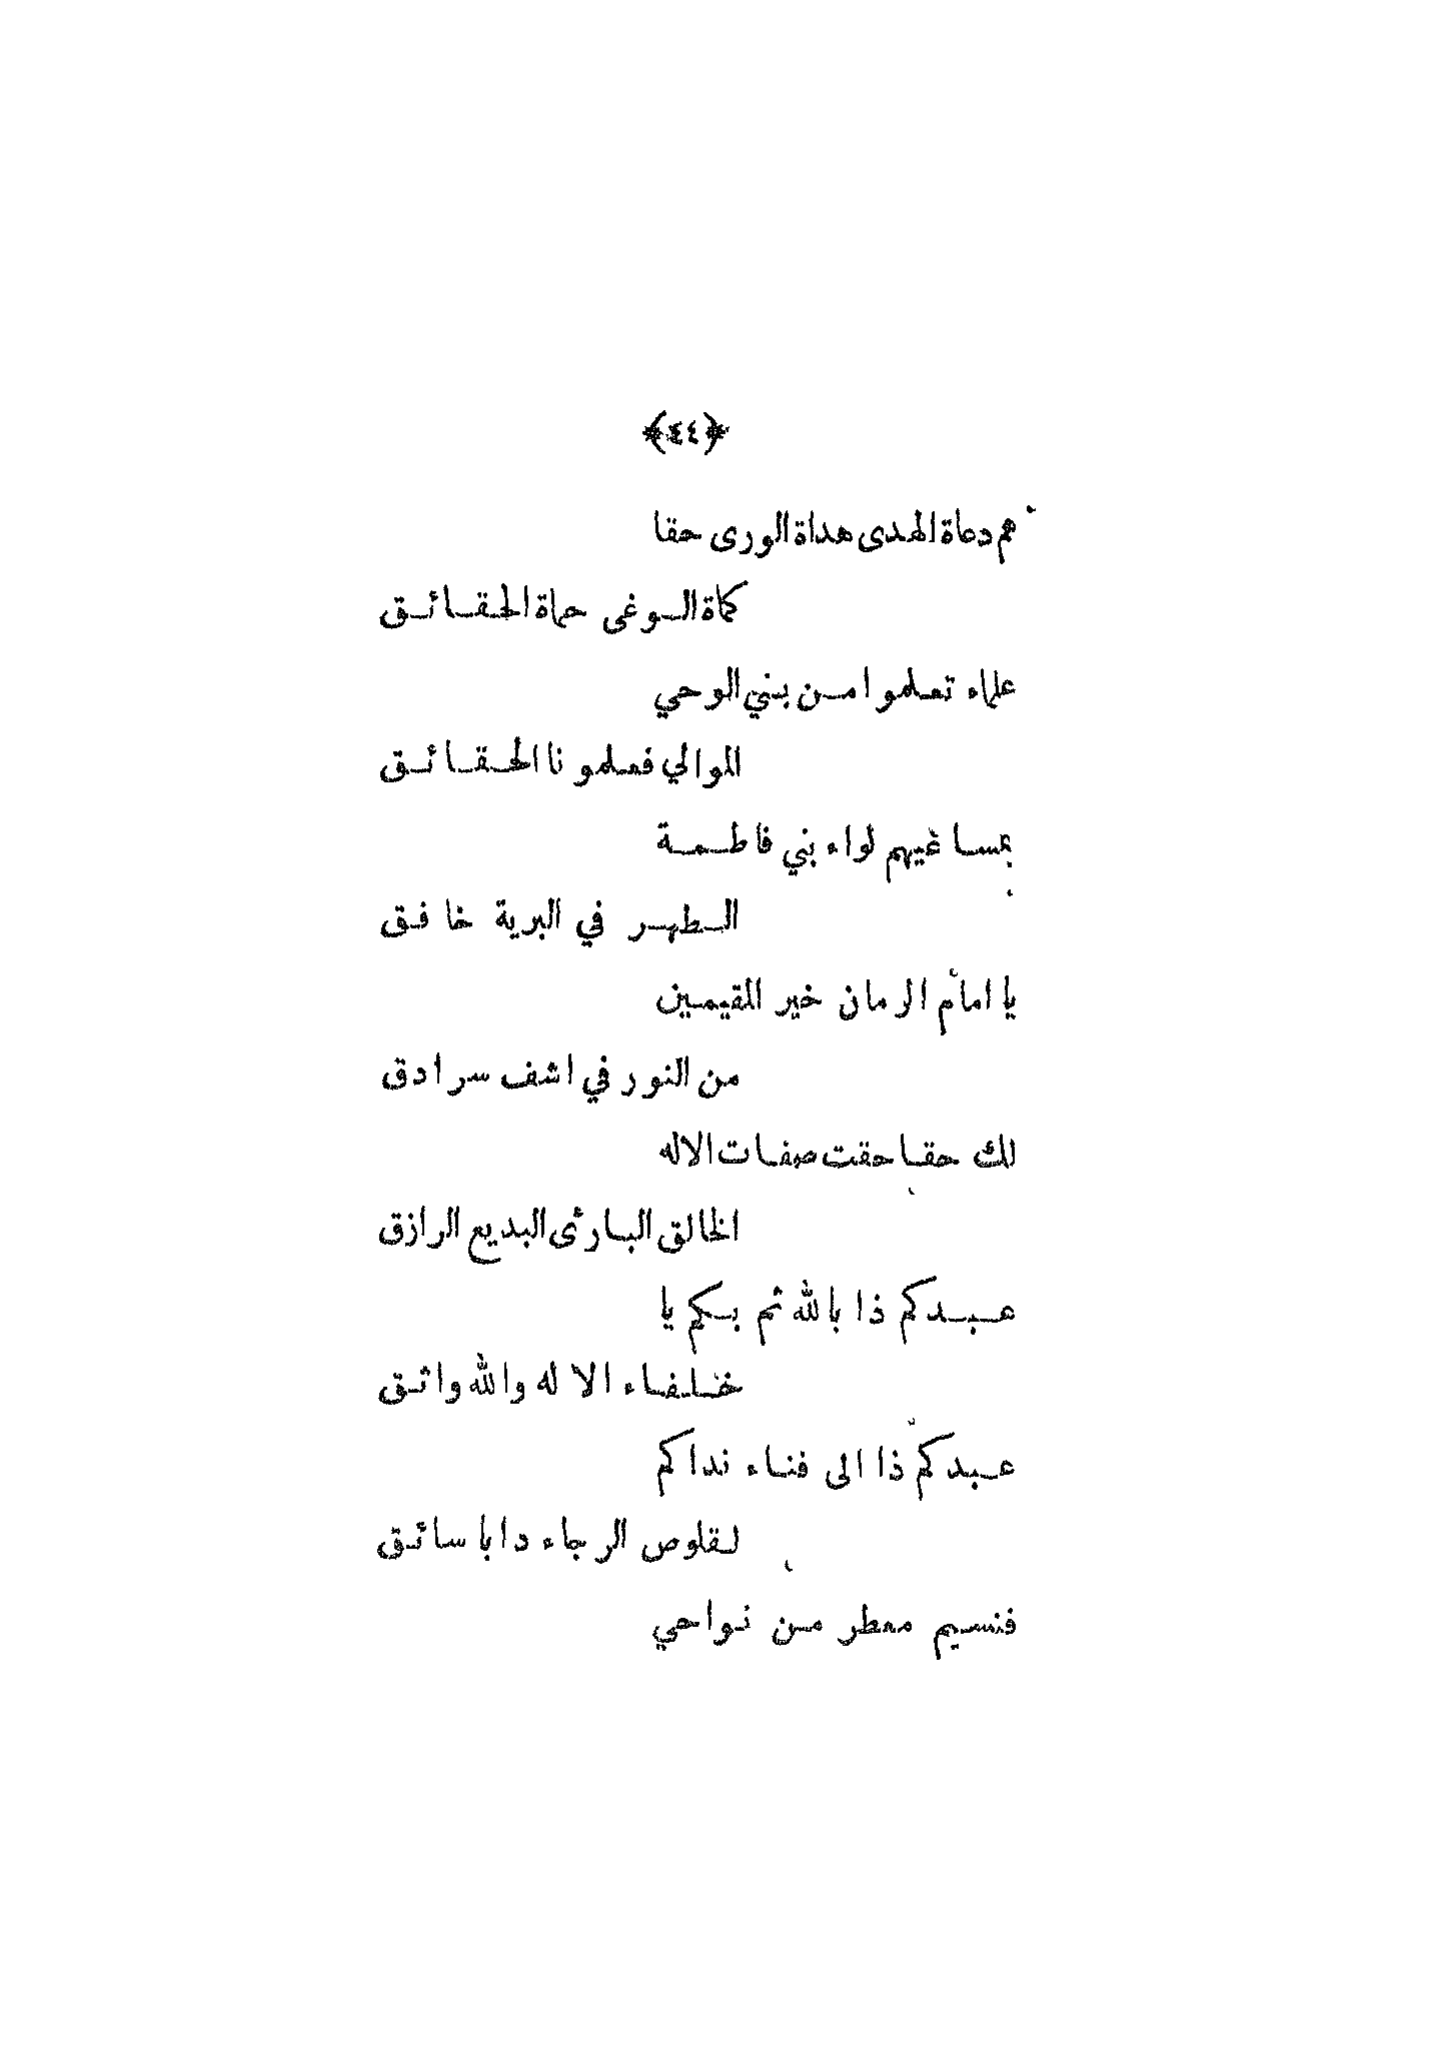 ﴿٤٤﴾
هم دعاة الهدى هداة الورى حقا
كماة الوغى حماة الحقائق
علماء تعلموا من بني الوحي
الموالي فعلمونا الحقائق
بمساعيهم لواء بني فاطمة
الطهر في البرية خافق
يا امام الزمان خير المقيمين
من النور في اشف سرادق
لك حقا حقت صفات الاله
الخالق البارئ البديع الرازق
عبدكم ذا بالله ثم بكم يا
خلفاء الاله والله واثق
عبدكم ذا الى فناء نداكم
لقلوص الرجاء دابا سائق
فنسيم معطر من نواحي